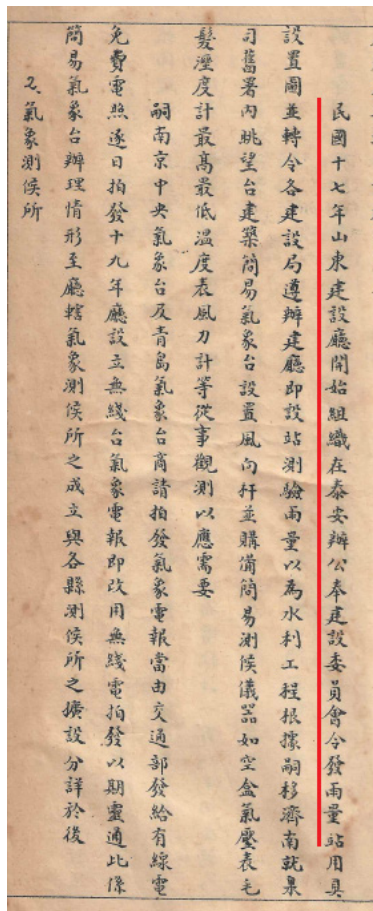 民國十七年山東建設廳開始組織在泰安辦公奉建設委員會令發雨量站用具
設置圖並轉令各建設局遵辦建廳即設站測驗雨量以為水利工程根據嗣移濟南就泉
司舊署內眺望台建築簡易氣象台設置風向杆並購備簡易測候儀器如空盒氣壓表毛
髮溼度計最高最低溫度表風力計等從事觀測以應需要
嗣南京中央氣象台及青島氣象台商請拍發氣象電報當由交通部發給有線電
免費電照逐日拍發十九年廳設立無綫台氣象電報即改用無綫電拍發以期靈通此係
簡易氣象台辦理情形至廳轄氣象測候所之成立與各縣測候所之擴設分詳於後
2、氣象測候所